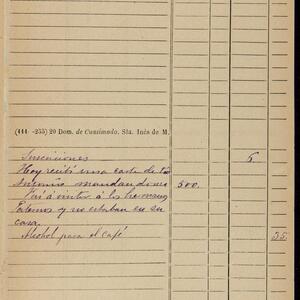 (111 -255) 20 Dom. de Cuasimodo. Sta. Inés de M.
Inscriciones 5.
Hoy recibí una carta de tio
Antonio mandandome 500.
Fuí á visitar á los hermanos
y no estaban en su
casa.
Alcohol para el café 35